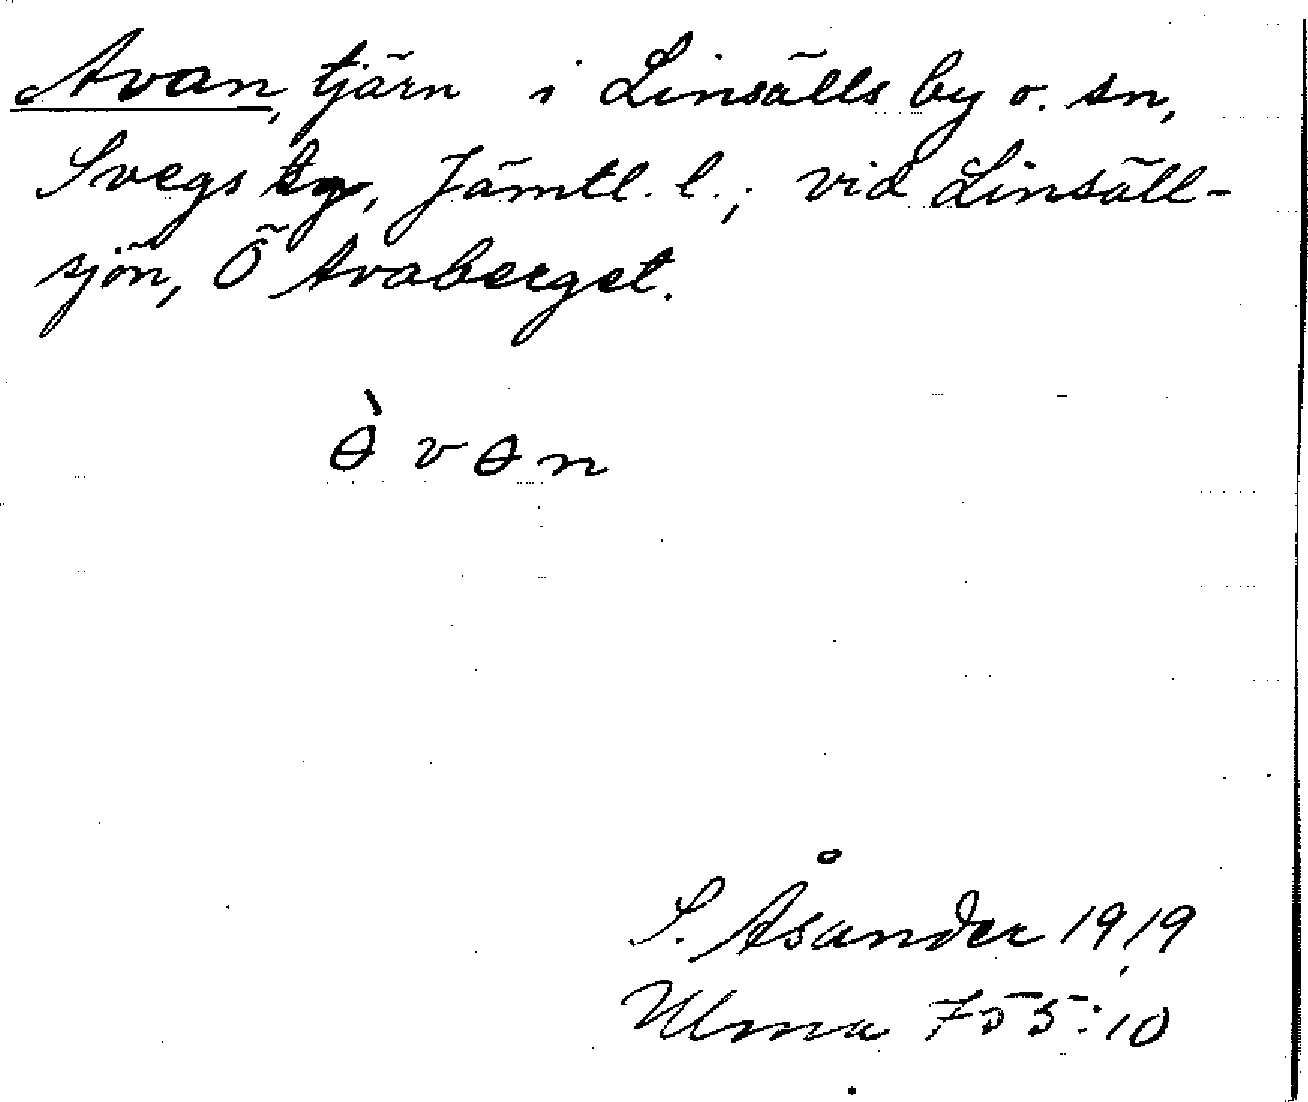 Avan, tjärn i Linsälls by o. sn,
Svegs tg, Jämtl. l.; vid Linsäll-
sjön, Ö Avaberget.
ɵ̀ v ɵ n
S. Åsander 1919
Ulma 755:10